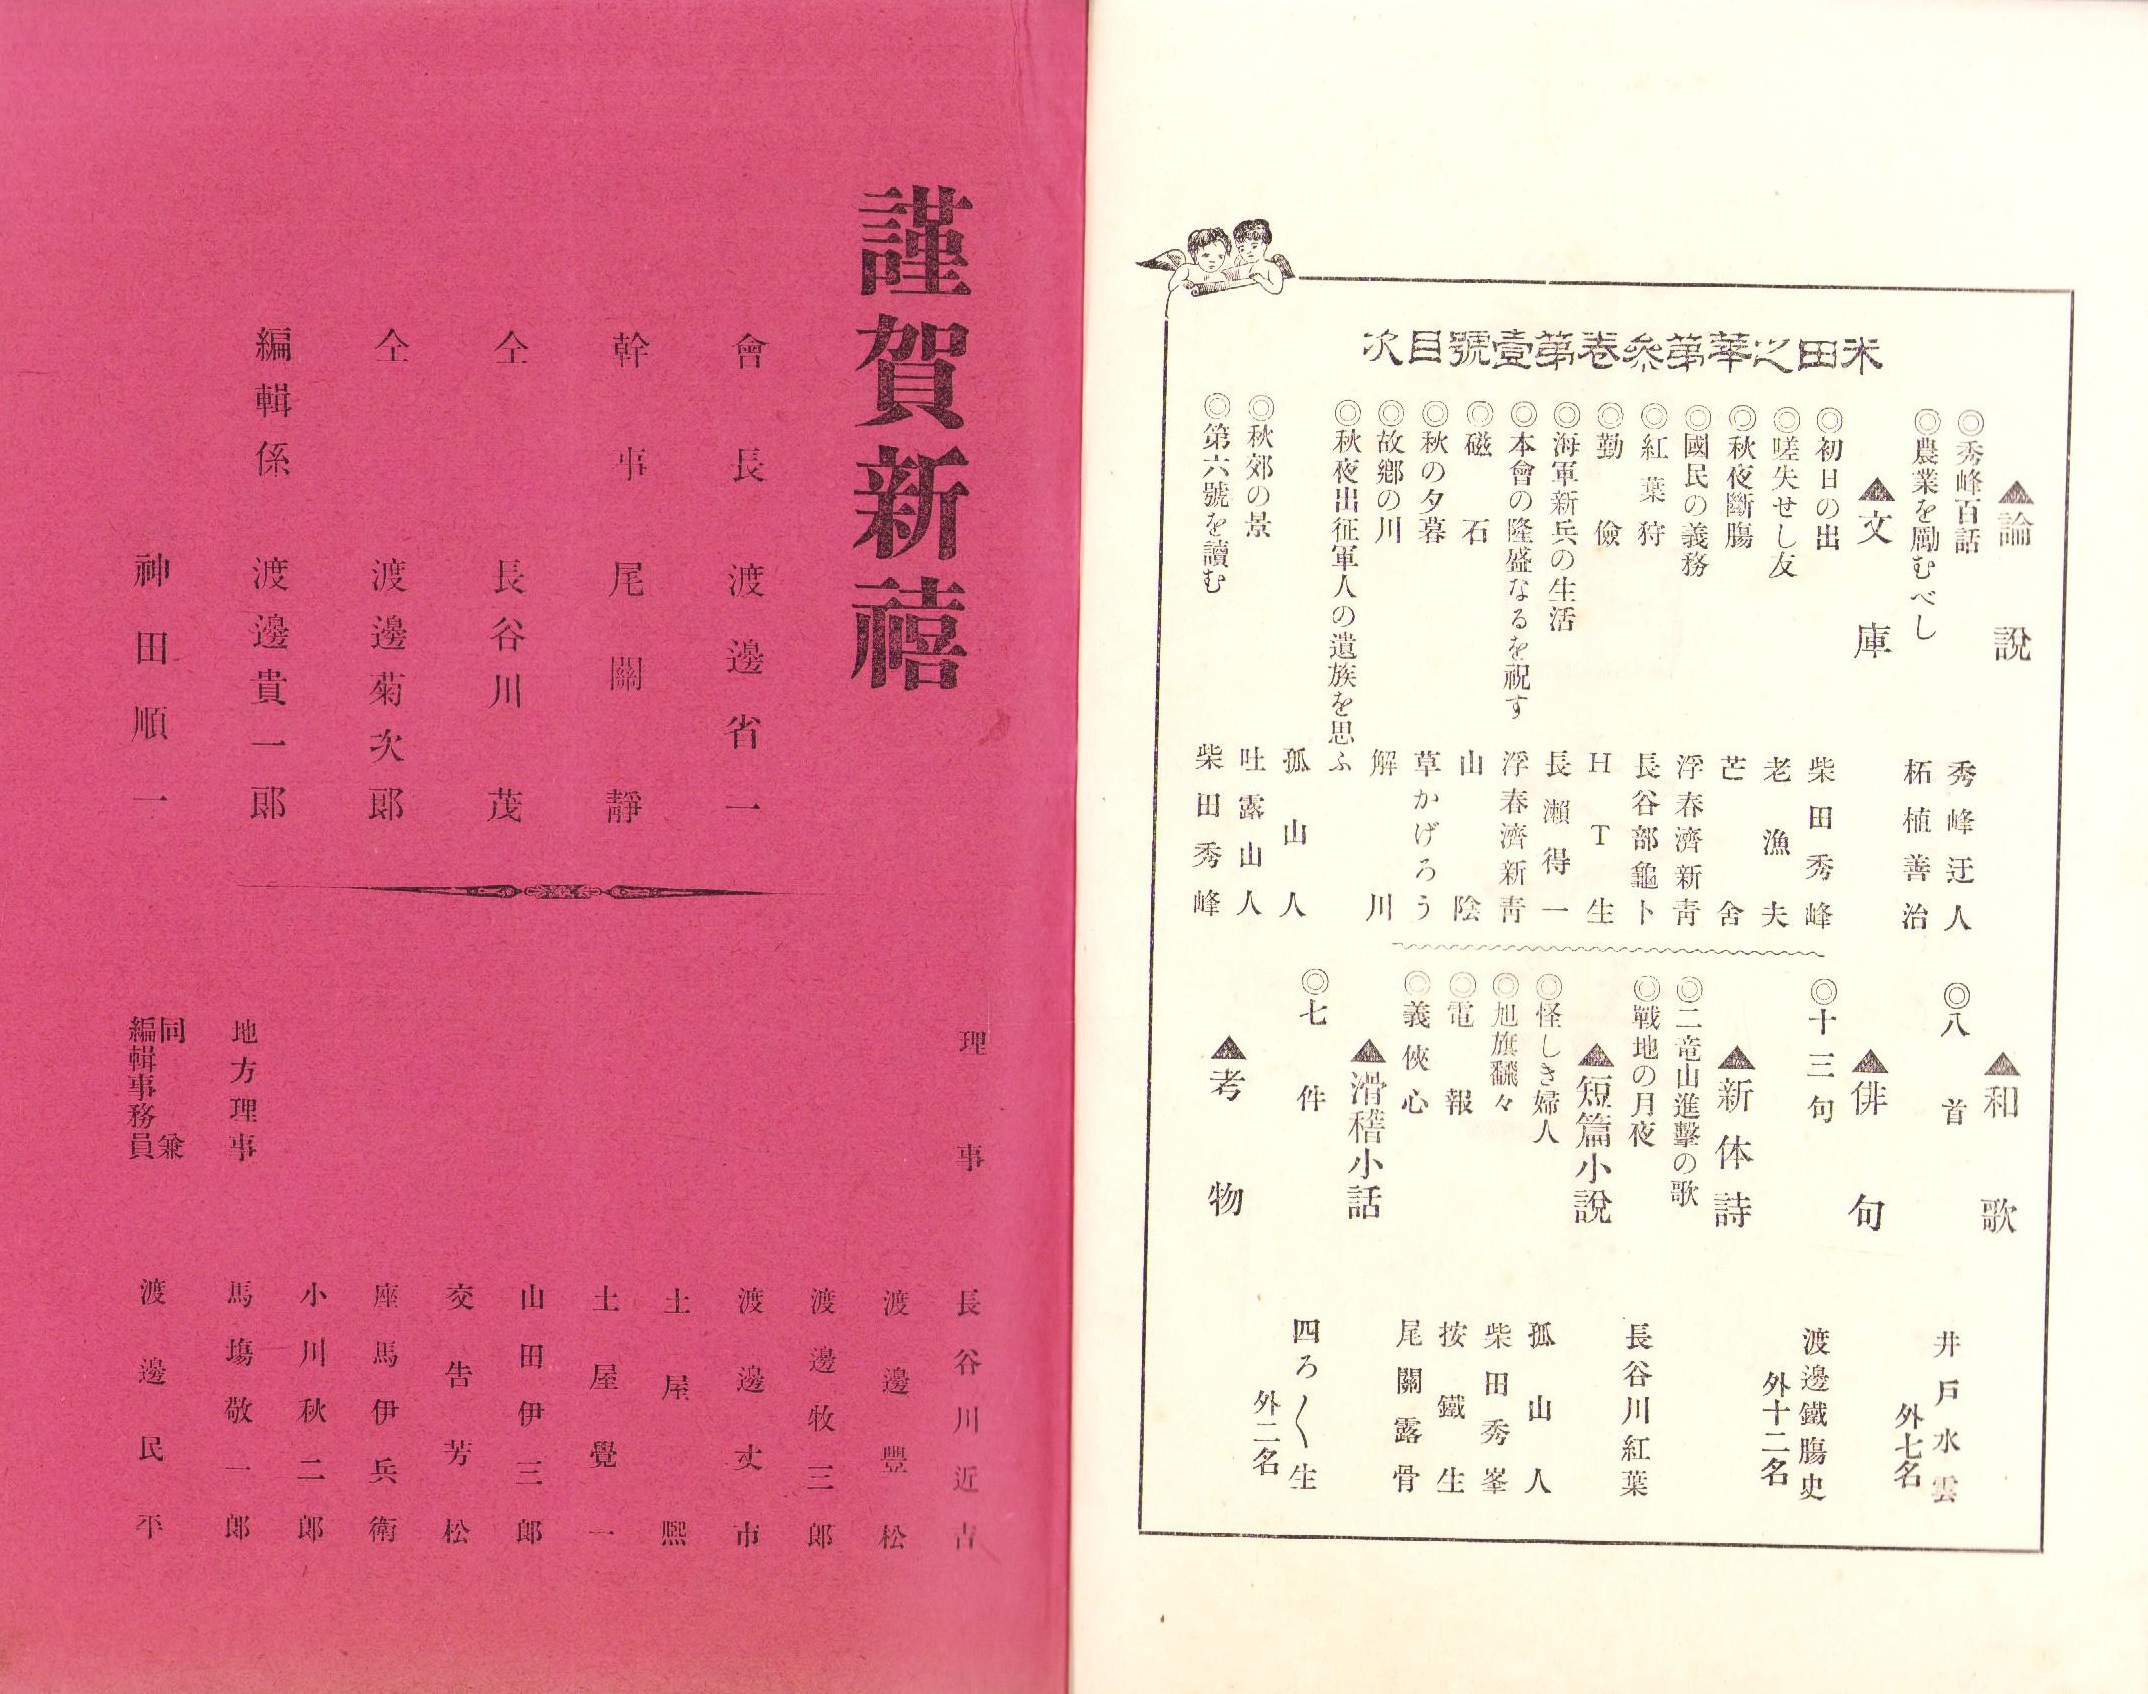 米田之華第叁卷第壹號目次
▲論說
◎秀峰百話 秀峰迂人
◎農業を勵むべし 柘植善治
▲文庫
◎初日の出 柴田秀峰
◎嗟失せし友 老漁夫
◎秋夜斷膓 芒舍
◎國民の義務 浮春濟新靑
◎紅葉狩 長谷部龜卜
◎勤儉 HT生
◎海軍新兵の生活 長瀨得一
◎本會の隆盛なるを祝す 浮春濟新靑
◎磁石 山陰
◎秋の夕暮 草かげろう
◎故鄕の川 解川
◎秋夜出征軍人の遺族を思ふ
孤山人
◎秋郊の景 吐露山人
◎第六號を讀む 柴田秀峰
▲和歌
◎八首 井戶水雲
外七名
▲俳句
◎十三句 渡邊鐵膓史
外十二名
▲新体詩
◎二竜山進擊の歌
◎戰地の月夜 長谷川紅葉
▲短篇小說
◎怪しき婦人 孤山人
◎旭旗飜々 柴田秀峯
◎電報 按鐵生
◎義俠心 尾關露骨
▲滑稽小話
◎七件 四ろ〱生
外二名
▲考物
謹賀新禧
會長 渡邊省一
幹事 尾關靜
仝 長谷川茂
仝 渡邊菊次郞
編輯係 渡邊貴一郞
神田順一
理事 長谷川近吉
渡邊豐松
渡邊牧三郞
渡邊丈市
土屋熙
土屋覺一
山田伊三郞
交告芳松
座馬伊兵衛
小川秋二郞
地方理事 馬塲敬一郞
同兼
編輯事務員 渡邊民平